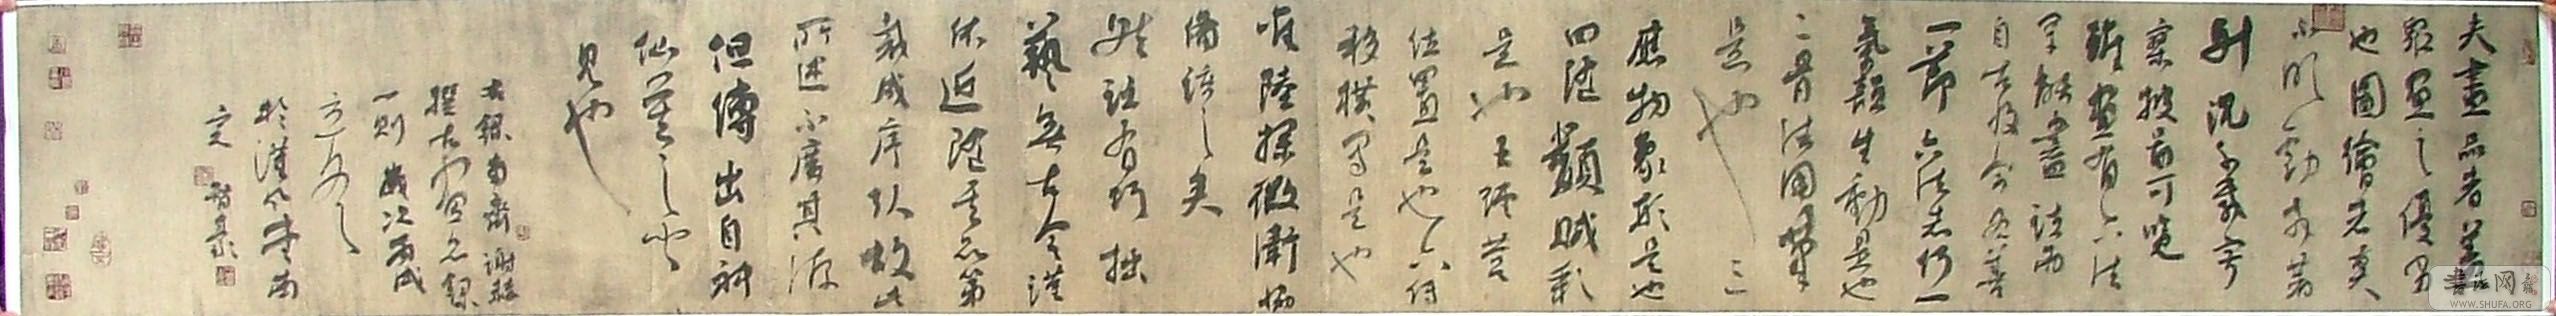 夫畫品者蓋
眾畫之優劣
也圖繪者莫
不明勸戒著
升沉千載寂
寥披圖可覽
雖畫有六法
罕能盡該而
自古及今各善
一節六法者何一
氣韻生動是也
二骨法用筆
是也三
應物象形是也
四隨類賦彩
是也五經營
位置是也六傳
移模寫是也
唯陸探微衛協
備該之矣
然跡有巧拙
藝無古今謹
依遠近隨其品第
裁成序引故此
所述不廣其源
但傳出自神
仙莫之聞
見也
右錄南齊謝赫
撰古畫品錄
一則歲次丙戌
於漢風堂南
書法网
WWW.SHUFA.ORG